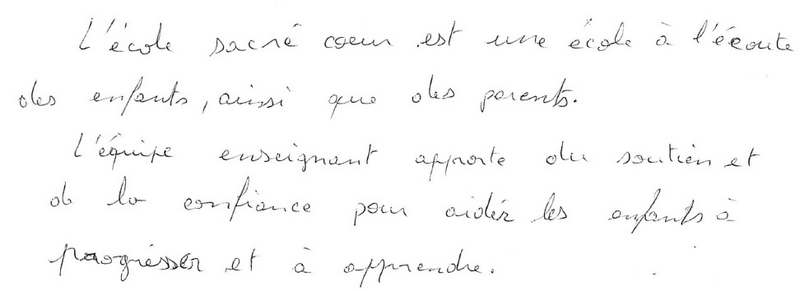 L'école sacré coeur est une école à l'écoute
des enfants, ainsi que des parents.
L'équipe enseignant apporte du soutien et
de la confiance pour aider les enfants à
progresser et à apprendre.